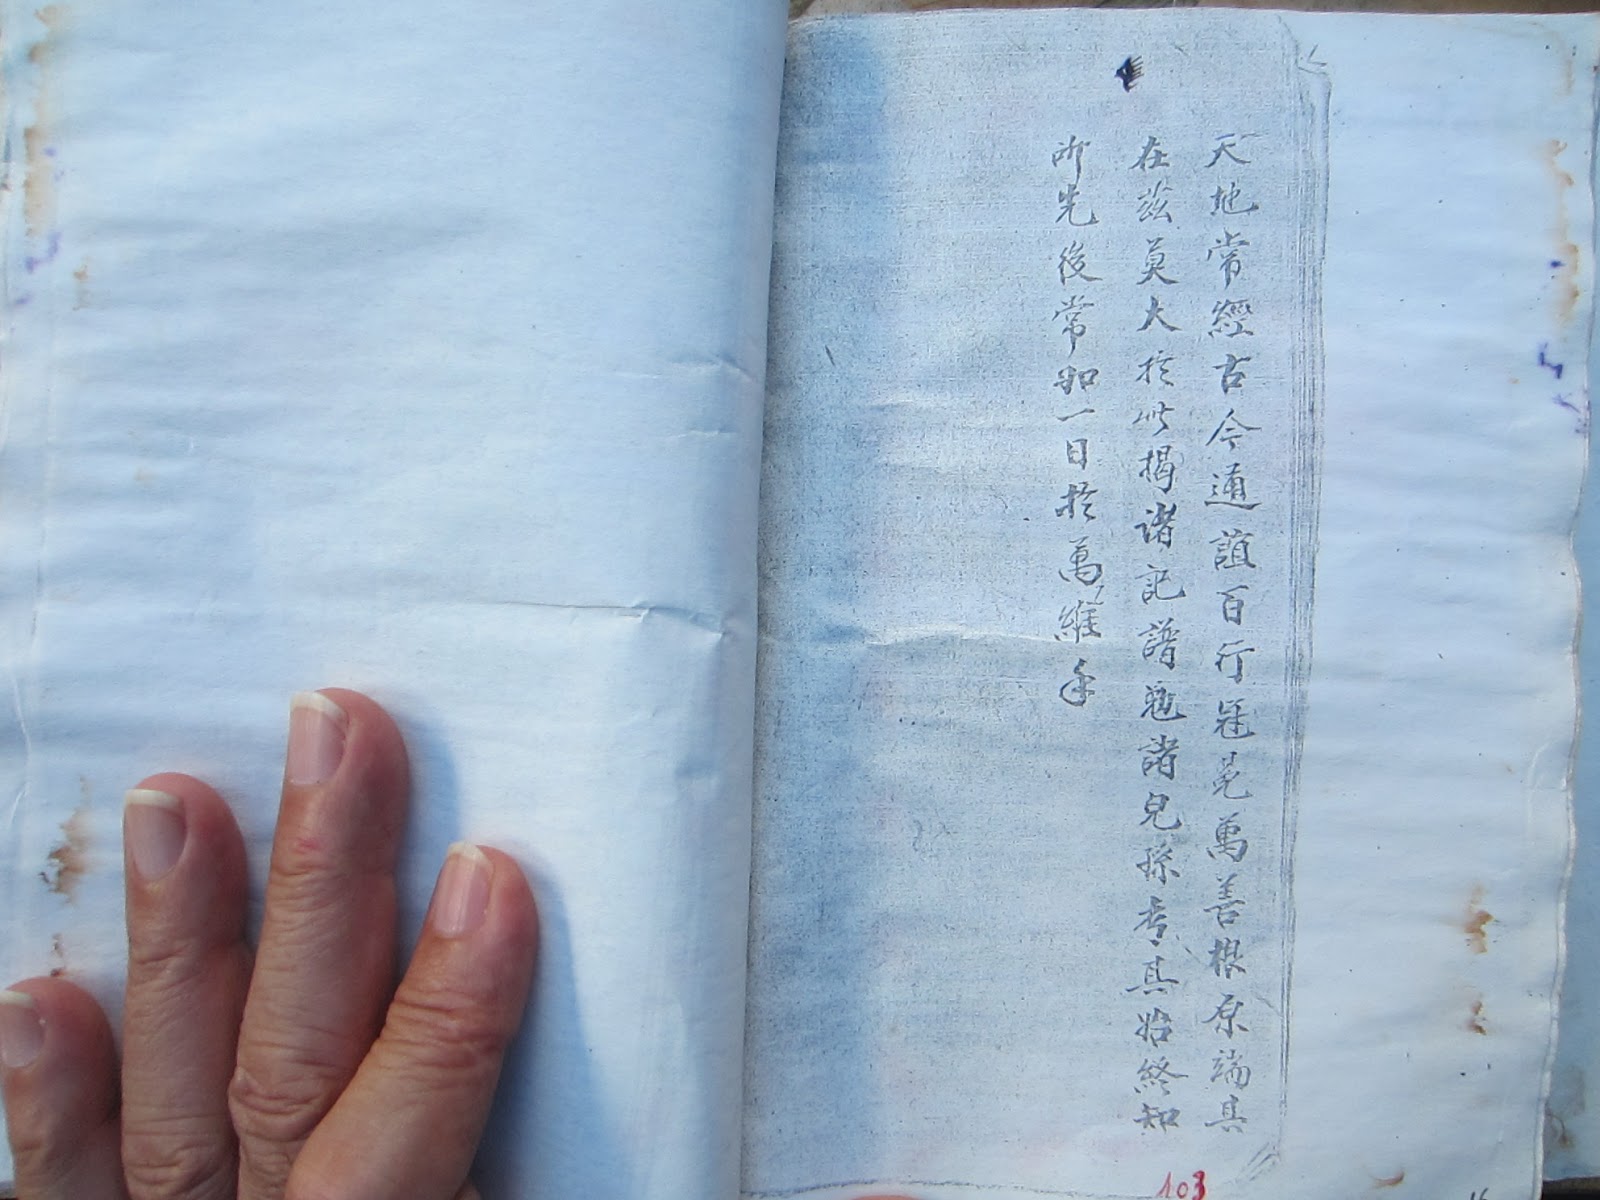 天地常經古今通誼百行冠冕萬善根原端其
在兹莫大於此揭諸記譜勉諸兒孫考其始終知
所先後常如一日於萬維年
103